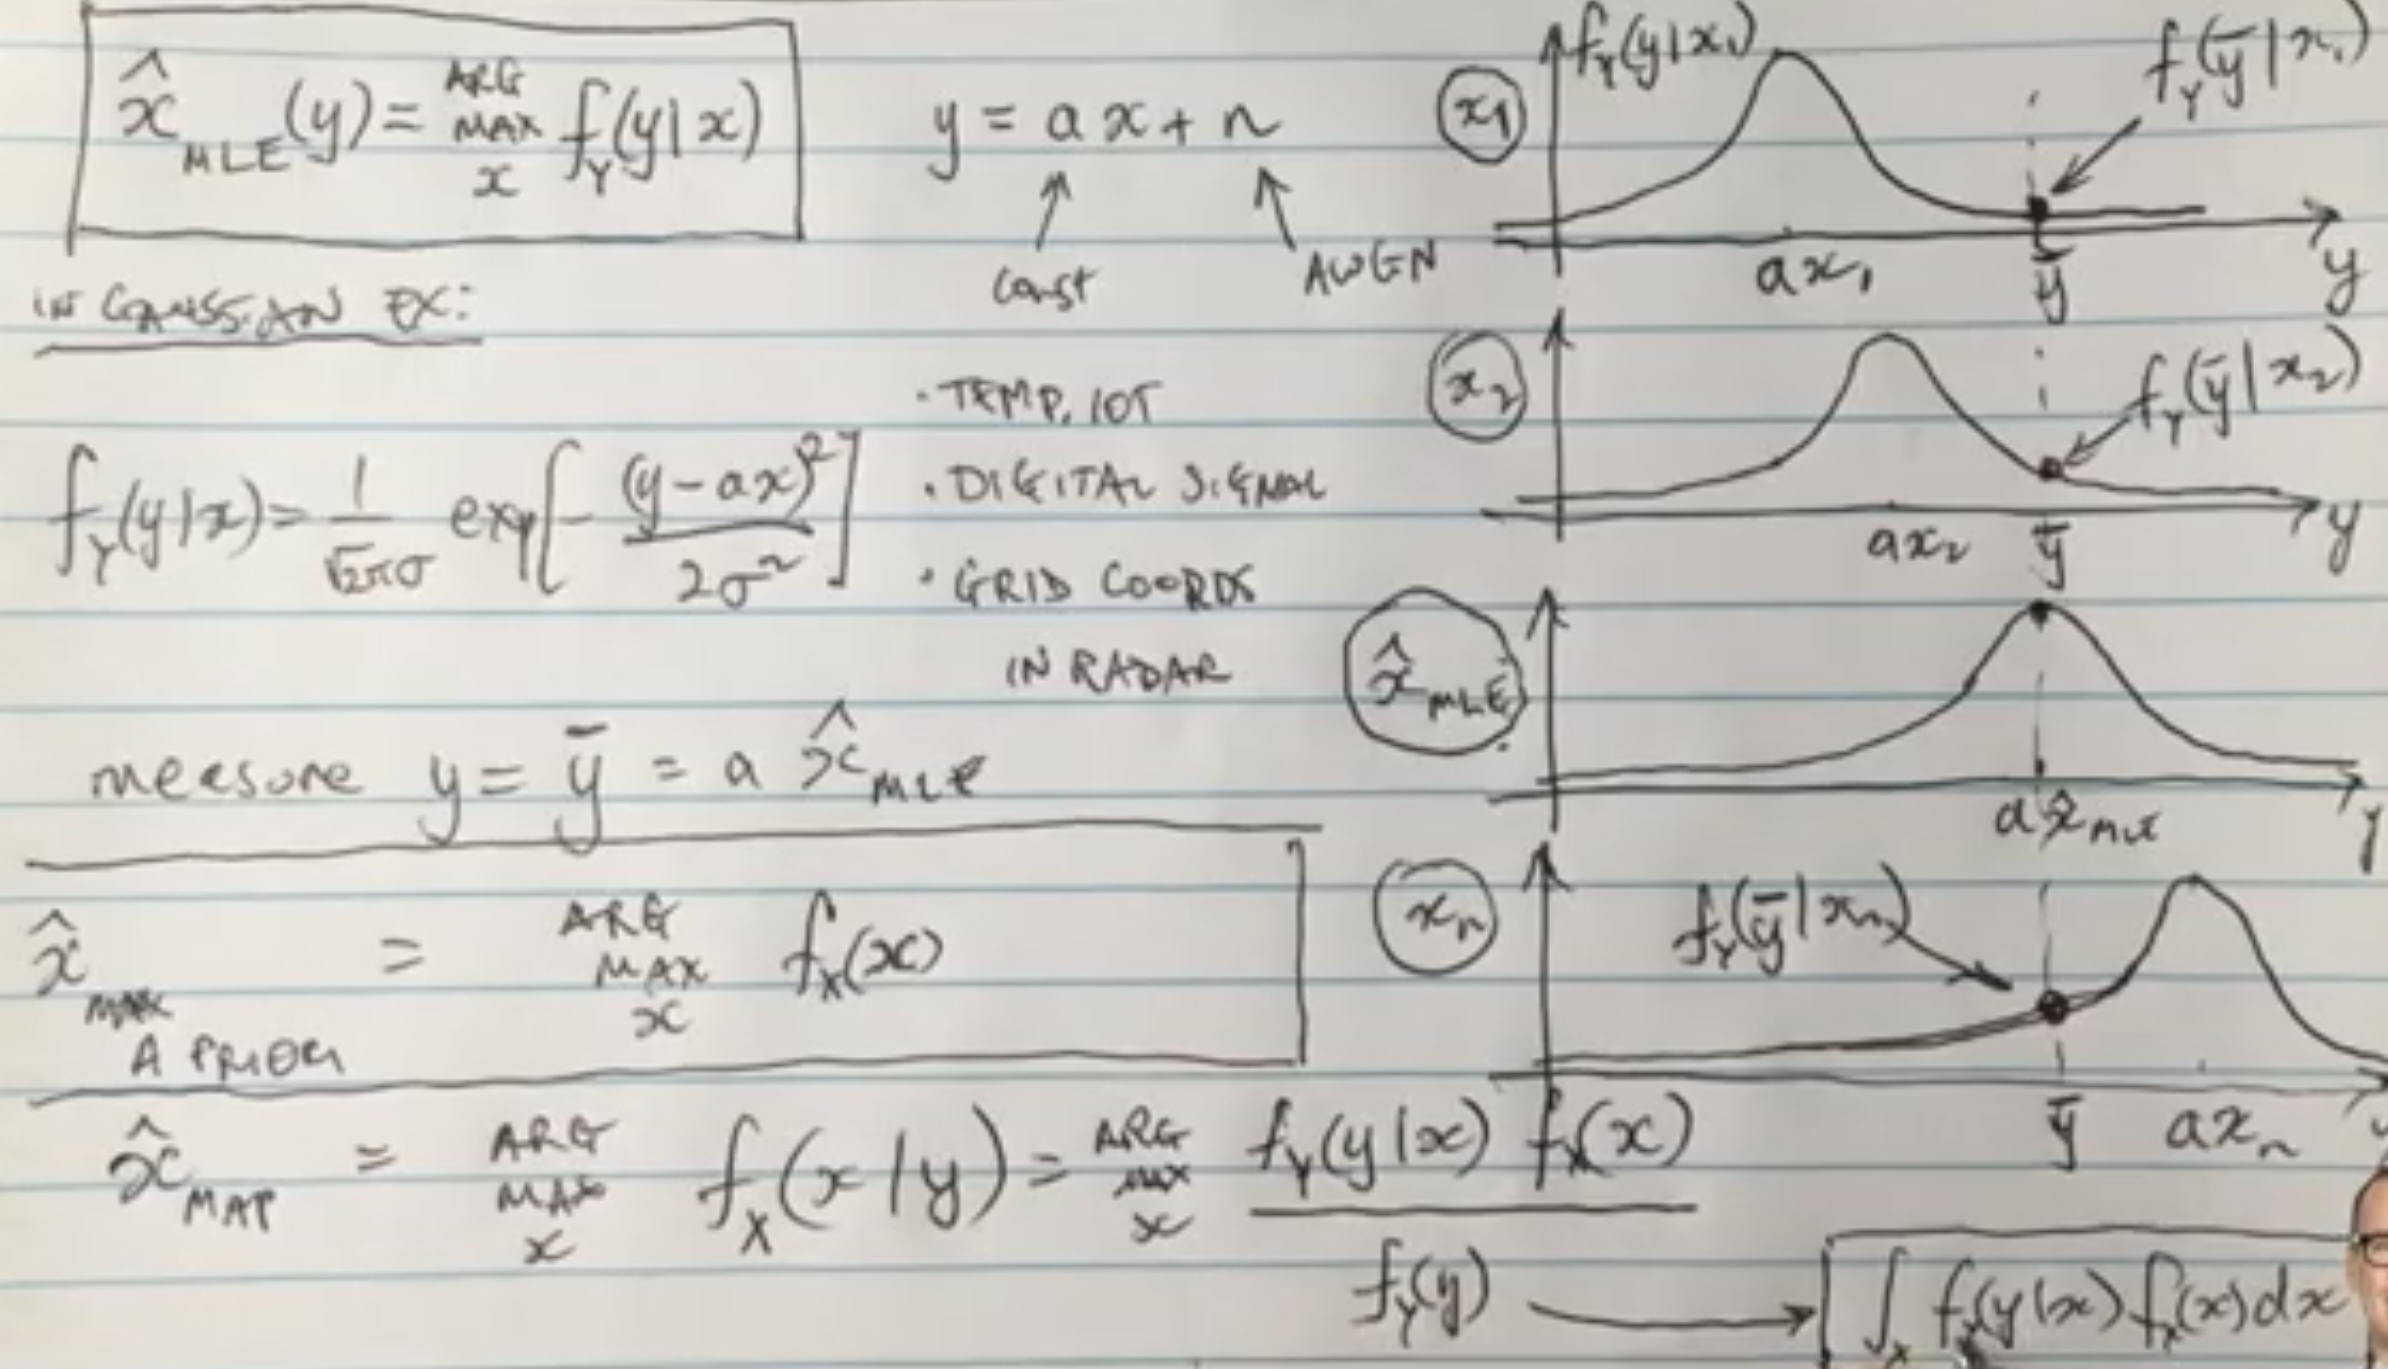 x̂_MLE(y) = ARG MAX_x f_Y(y|x)
y = ax + n
Const
AWGN
IN GAUSSIAN EX:
f_Y(y|x) = 1/(√2πσ) exp[-(y-ax)²/(2σ²)]
· TEMP, IOT
· DIGITAL SIGNAL
· GRID COORDS
IN RADAR
measure y = ȳ = a x̂_MLE
x̂_MAX A PRIORI = ARG MAX_x f_X(x)
x̂_MAP = ARG MAX_x f_X(x|y) = ARG MAX_x f_Y(y|x) f_X(x)
f_Y(y) → ∫_x f_Y(y|x) f_X(x) dx
x₁
f_Y(y|x₁)
f_Y(ȳ|x₁)
ax₁ ȳ y
x₂
f_Y(ȳ|x₂)
ax₂ ȳ y
x̂_MLE
a x̂_MLE y
x_n
f_Y(ȳ|x_n)
ȳ ax_n